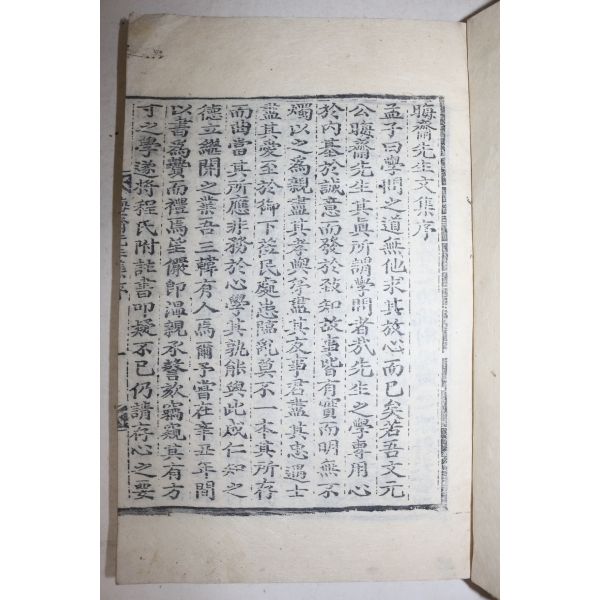 晦齋先生文集序
孟子曰學問之道無他求其放心而已矣若吾文元
公晦齋先生其眞所謂學問者哉先生之學專用心
於內基於誠意而發於致知故事皆有實而明無不
燭以之爲親盡其孝與孥盡其友事君盡其忠遇士
盡其愛至於御下莅民處患臨亂莫不一本其所存
而曲當其所應非務於心學其孰能與此成仁知之
德立繼開之業吾三韓有人焉爾予嘗在辛丑年間
以書爲贄而禮焉笙儼卽溫親承謦欬竊窺其有方
寸之學遂將程氏附註書叩疑不已仍請存心之要
晦齋先生集序